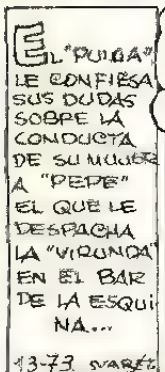 EL "PULGA"
LE CONFIESA
SUS DUDAS
SOBRE LA
CONDUCTA
DE SU MUJER
A "PEPE"
EL QUE LE
DESPACHA
LA "VIRUNDA"
EN EL BAR
DE LA ESQUI
NA...
13-73 SUAREZ